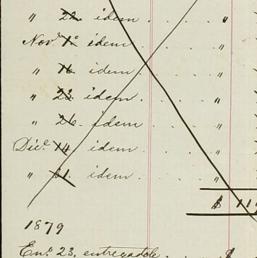 " 22 idem . . . "
Nov.e 1º idem
" 16 idem . . . "
" 23 idem . . . "
" 26 idem . . . "
Dic.e 14 idem . . . "
" 21 idem . . . "
$ 11
1879
En.o 23, entregadole . . $